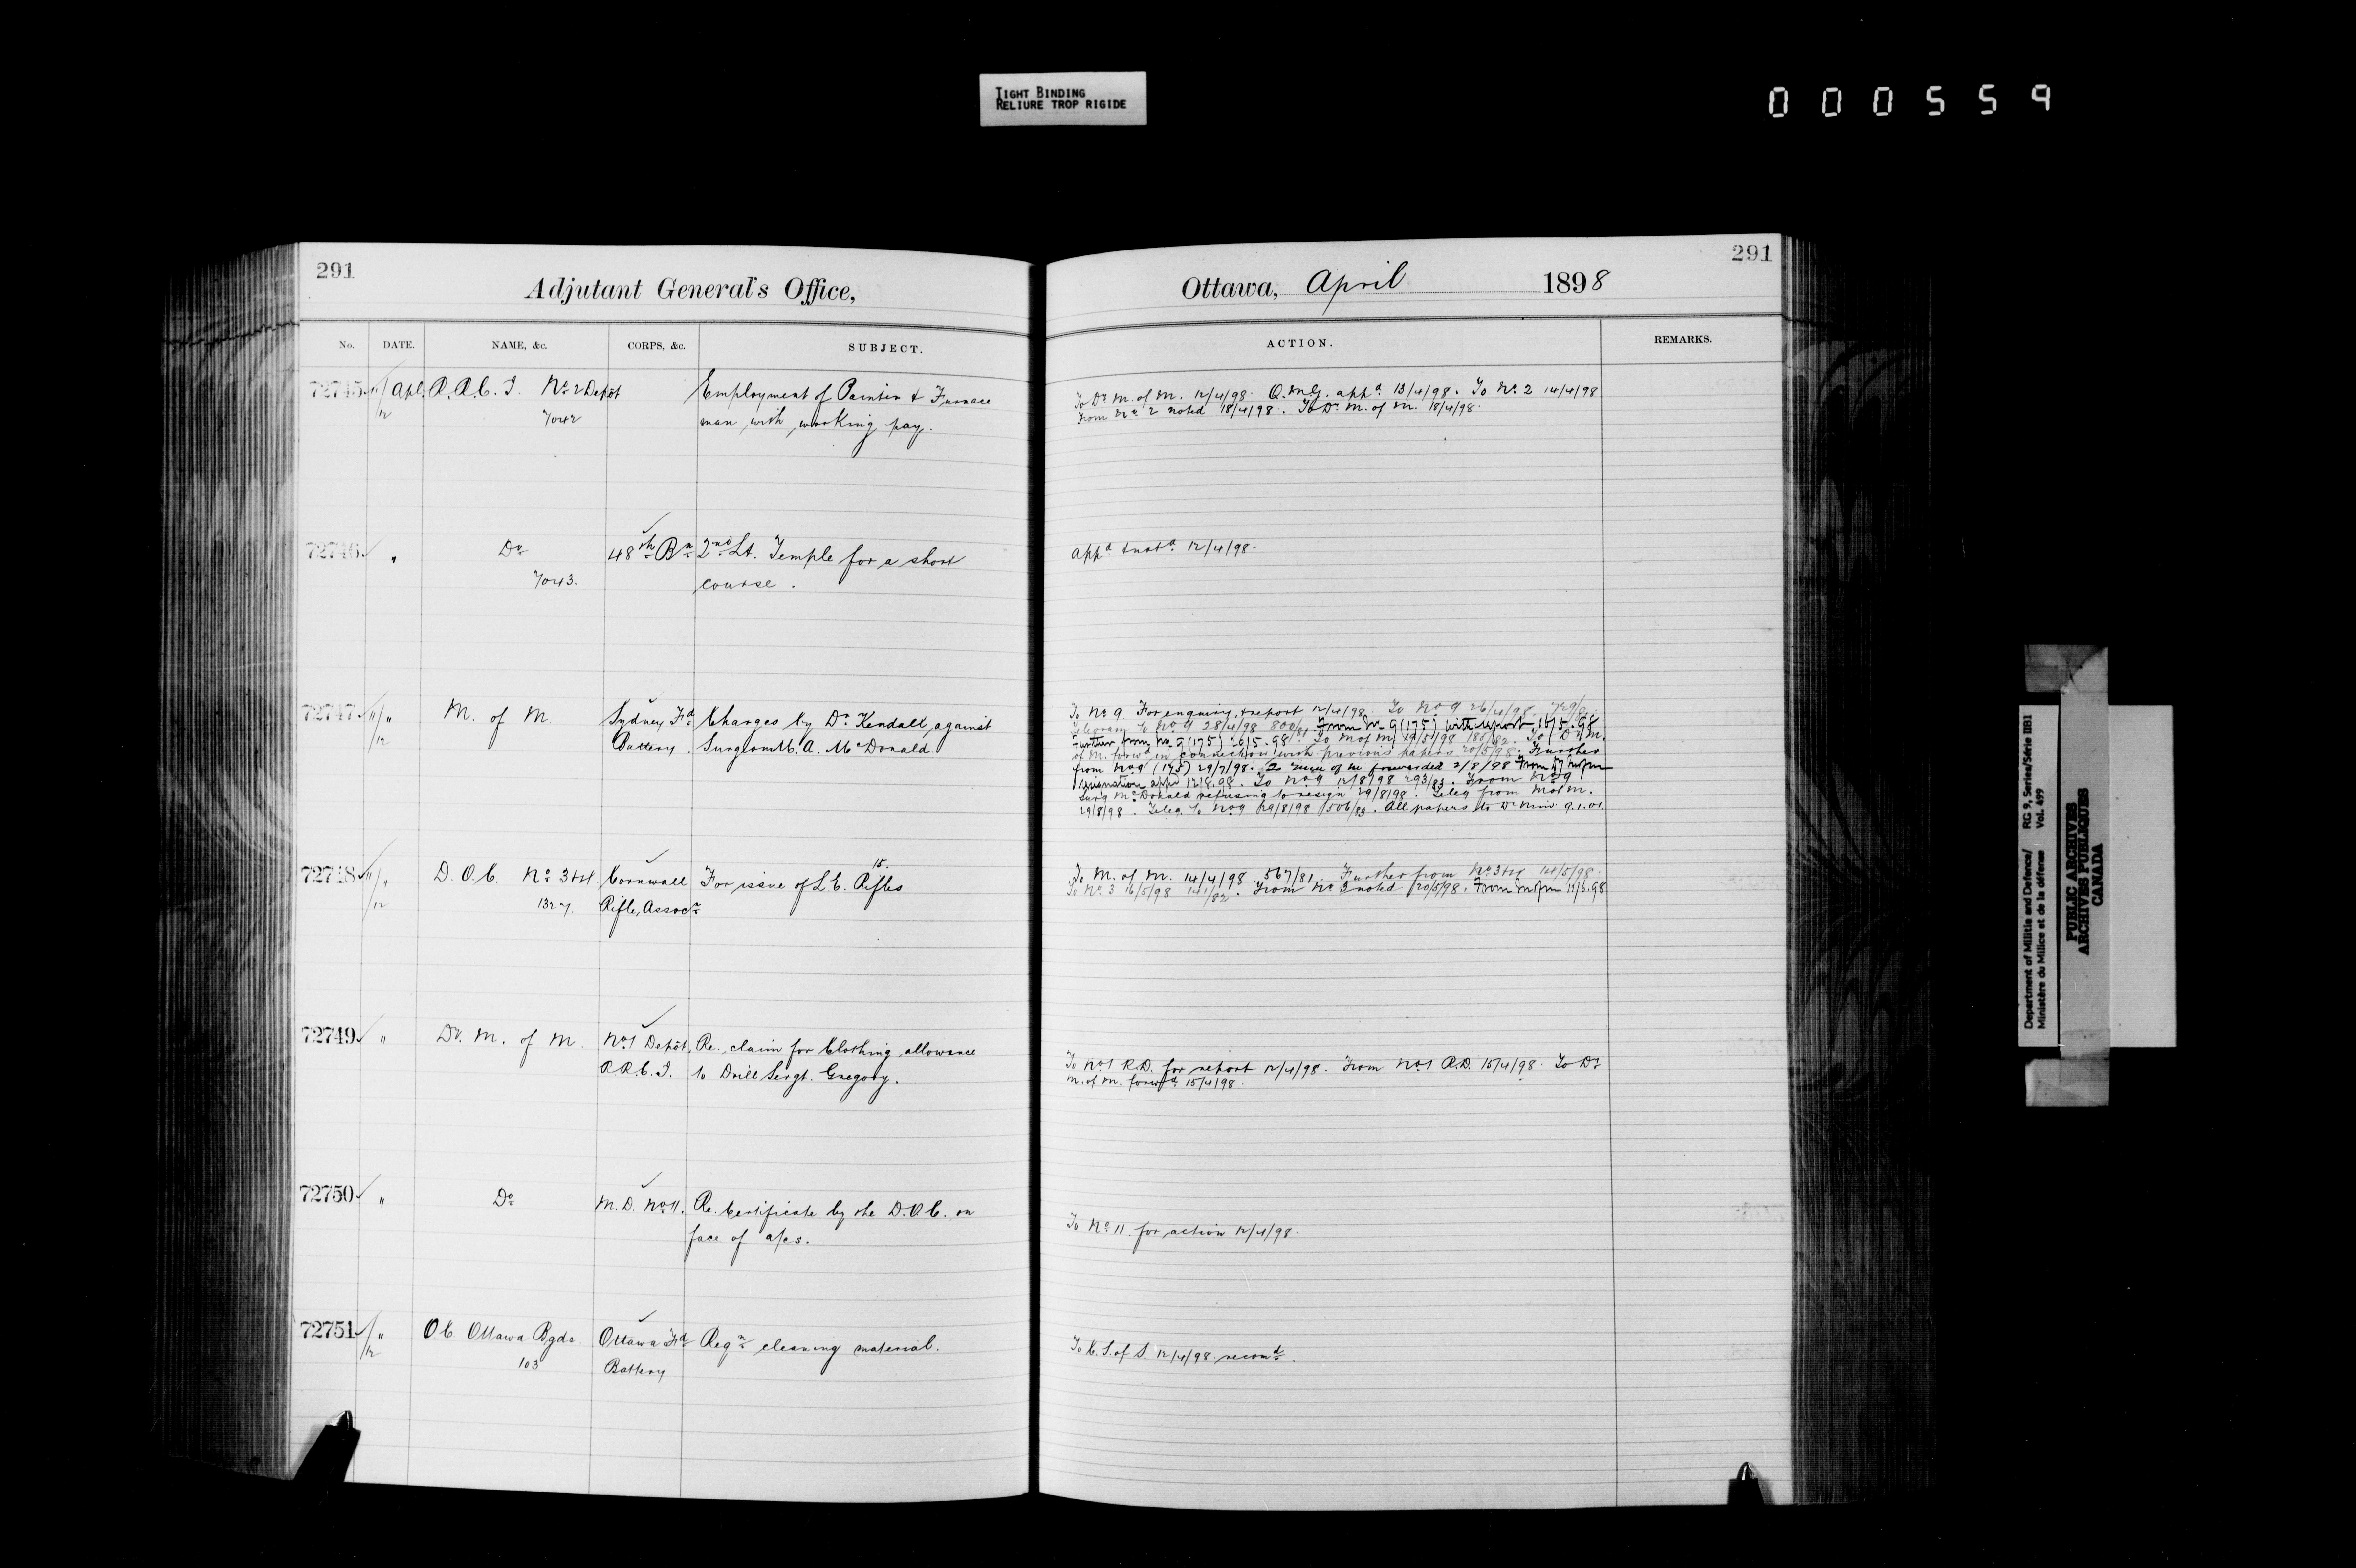 TIGHT BINDING
RELIURE TROP RIGIDE
000559
291
Adjutant General's Office,
No. DATE. NAME, &c. CORPS, &c. SUBJECT.
72745 11/12 Apl. R.R.C.I. No. 2 Depôt Employment of Painter & Furnace
7042 man, with working pay.
72746 " Do 48th Bn 2nd Lt. Temple for a short
7043. course.
72747 11/12 " M. of M. Sydney Fd Charges by Dr. Kendall, against
Battery. Surgeon M. A. McDonald
72748 11/12 " D.O.C. No. 3 & 4 Cornwall For issue of L.E. Rifles 15.
1327. Rifle Assocn
72749 " D. M. of M. No. 1 Depôt, Re. claim for Clothing allowance
R.R.C.I. to Drill Sergt. Gregory.
72750 " Do M.D. No. 11. Re. Certificate by the D.O.C. on
face of a/cs.
72751 11/12 " O.C. Ottawa Bgde Ottawa Fd Reqn cleaning material.
103 Battery
291
Ottawa, April 1898
ACTION. REMARKS.
To D. M. of M. 12/4/98. Q.M.G. appd 13/4/98. To No. 2 14/4/98
From No. 2 noted 18/4/98. To D. M. of M. 18/4/98.
appd 12/4/98.
To No 9. For enquiry & report 12/4/98. To No 9 26/4/98. 729/81
Telegram to No 9 28/4/98 800/81 From No 9 (175) with report 16.5.98
Further from No 9 (175) 20.5.98. To M of M. 19/5/98 185/82. To D. M.
of M. forwd in connection with previous papers 20/5/98. Further
from No 9 (175) 29/7/98. forwarded 2/8/98 From
resignation appd 12.8.98. To No 9 12/8/98 293/83. From No 9
Surg McDonald refusing to resign 29/8/98. Teleg from M of M.
29/8/98. Teleg. to No 9 29/8/98 506/83. All papers to D. Min 9.1.01
To M. of M. 14/4/98 567/81. Further from No 3 & 4 14/5/98.
To No. 3 16/5/98 141/82. From No 3 noted 20/5/98. From M of M 11/6.98
To No 1 R.D. for report 12/4/98. From No 1 R.D. 15/4/98. To D.
M. of M. forwd 15/4/98.
To No. 11 for action 12/4/98.
To C.S. of S. 12/4/98 recomd.
Department of Militia and Defence/ RG 9, Series/Série IIB1
Ministère du Milice et de la défense Vol. 499
PUBLIC ARCHIVES
ARCHIVES PUBLIQUES
CANADA